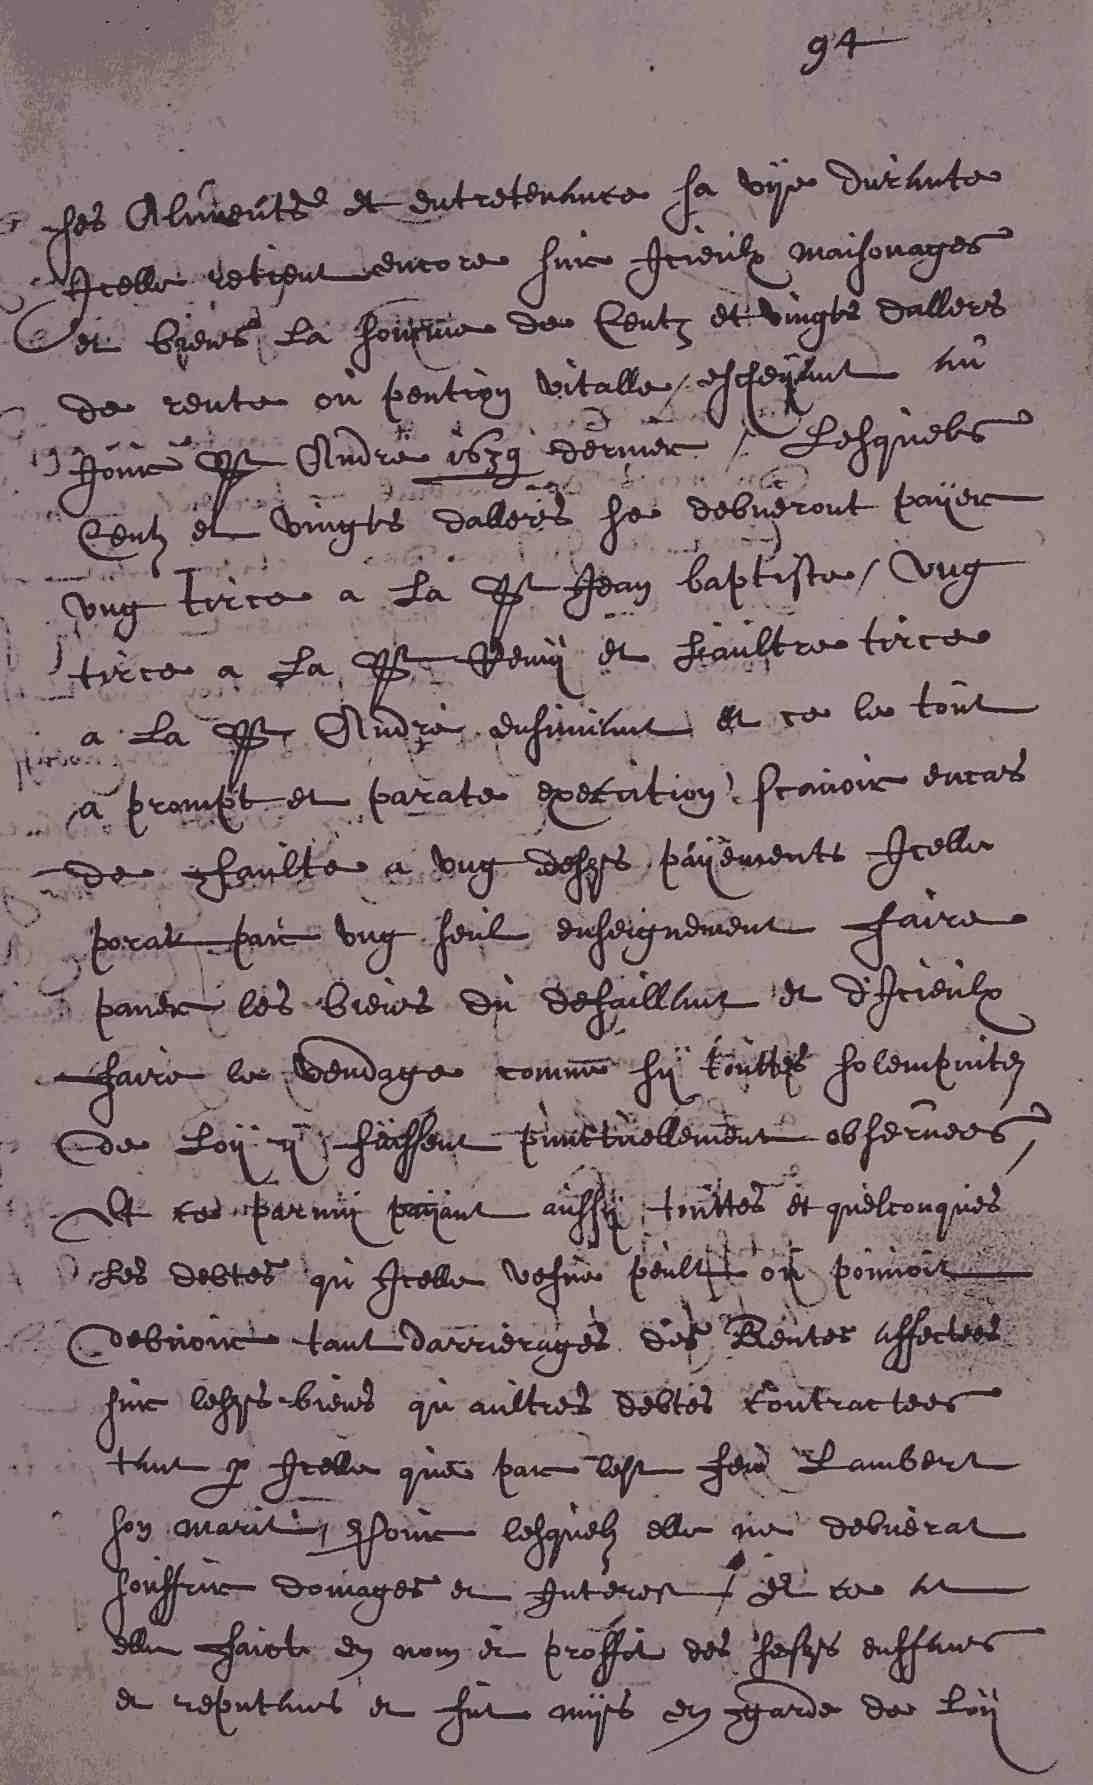 94
ses Aliments et entretenance sa vÿe durante
Icelle retient encore sur Icieulx maisonages
et biens la somme de Cent et vingts dallers
de rente ou pention vitalle / escheÿant au
Jour St Andrė 1639 dernier / Lesquels
Cent et vingts dallers se debveront paÿer
ung tirce a la St Jean baptiste / ung
tirce a la St Remÿ et l'aultre tirce
a la St Andrė ensuivant et ce le tout
a prompt et parate execution scavoir encas
de faulte a ung desds paÿements Icelle
porat par ung seul enseignement faire
paner les biens du defaillant et d'Icieulx
faire le vendage comme sÿ touttes solempnitez
de Loÿ ÿ fuissent punctuellement observees /
Et ce parmÿ paÿant aussÿ touttes et quelconques
les debtes qu Icelle vesve peult ou pouvoit
debvoir tant darrierages des Rentes affectees
sur lesds biens qu aultres debtes contractees
tant p Icelle que par ledt feu Lambert
son marit, pour lesquelz elle ne debverat
souffrir domages et Interest / et ce at
elle faict en nom et proffit des sesds enffans
et reputans et fut mÿs en garde de Loÿ